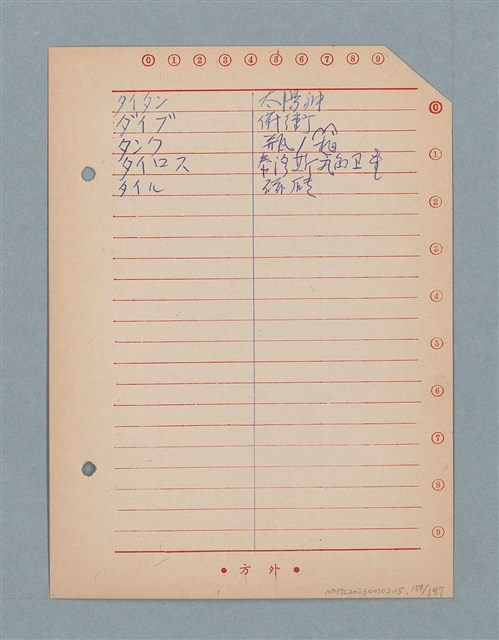 0 1 2 3 4 5 6 7 8 9
タイタン 太陽神
ダイブ 俯衝
タンク 瓶/箱
タイロス 泰洛斯 衛星
タイル 磁磚
0
1
2
3
4
5
6
7
8
9
• 方 外 •
NMTL20230010205, 159/187